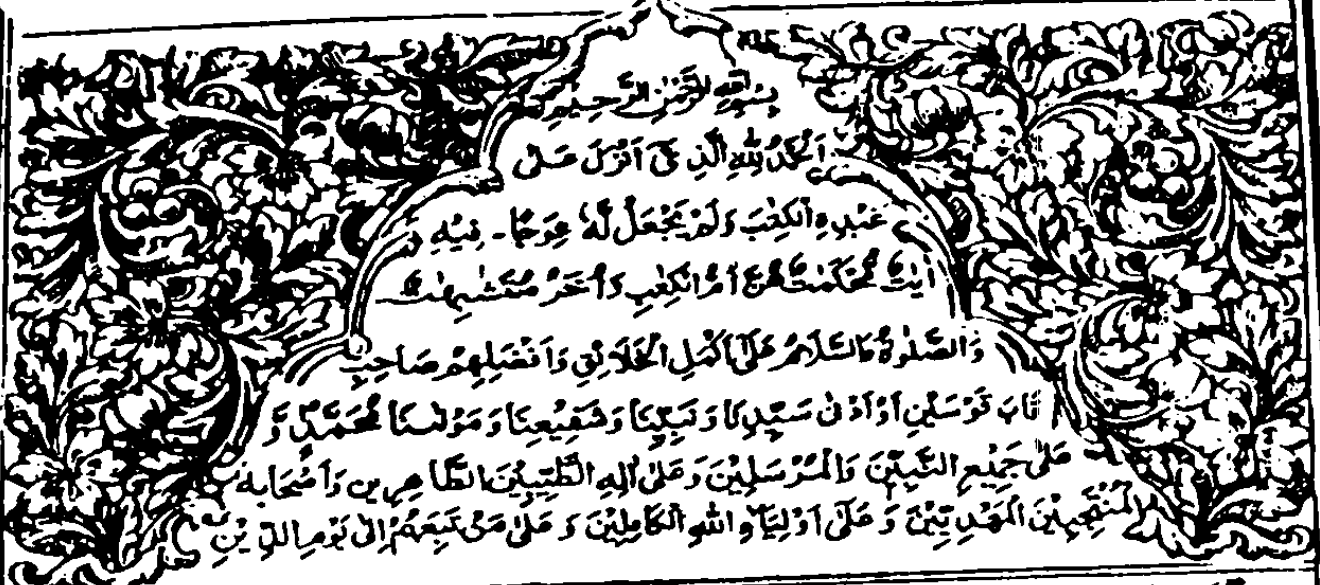 بِسْمِ اللّٰهِ الرَّحْمٰنِ الرَّحِيْمِ
اَلْحَمْدُ لِلّٰهِ الَّذِىْ اَنْزَلَ عَلٰى
عَبْدِهِ الْكِتٰبَ وَلَمْ يَجْعَلْ لَّهٗ عِوَجًا۔ فِيْهِ
اٰيٰتٌ مُّحْكَمٰتٌ هُنَّ اُمُّ الْكِتٰبِ وَاُخَرُ مُتَشٰبِهٰتٌ
وَالصَّلٰوةُ وَالسَّلَامُ عَلٰى اَكْمَلِ الْخَلَائِقِ وَاَفْضَلِهِمْ صَاحِبِ
قَابَ قَوْسَيْنِ اَوْ اَدْنٰى سَيِّدِنَا وَنَبِيِّنَا وَشَفِيْعِنَا وَمَوْلٰنَا مُحَمَّدٍ وَّ
عَلٰى جَمِيْعِ النَّبِيِّيْنَ وَالْمُرْسَلِيْنَ وَعَلٰى اٰلِهِ الطَّيِّبِيْنَ الطَّاهِرِيْنَ وَاَصْحَابِهِ
الْمُنْتَجَبِيْنَ الْمَهْدِيِّيْنَ وَعَلٰى اَوْلِيَاءِ اللّٰهِ الْكَامِلِيْنَ وَعَلٰى مَنْ تَبِعَهُمْ اِلٰى يَوْمِ الدِّيْنِ